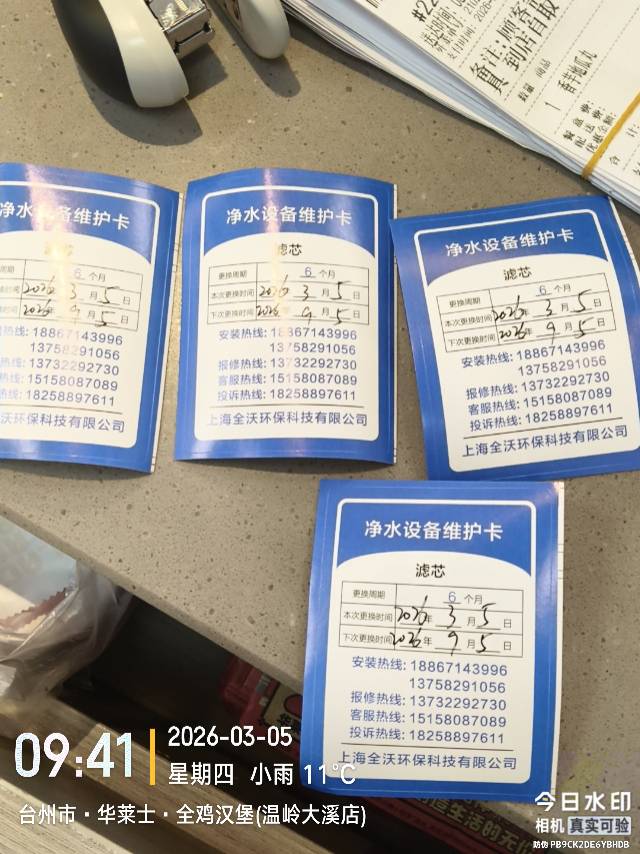 #22
备注：顾客
到店自取
数量 商品
1 香芋地瓜丸
餐盒费：
配送费：
优惠金额：
净水设备维护卡
滤芯
周期 6 个月
换时间 2026 3 月 5 日
换时间 2026 9 月 5 日
热线: 18867143996
13758291056
热线: 13732292730
热线: 15158087089
热线: 18258897611
全沃环保科技有限公司
净水设备维护卡
滤芯
更换周期 6 个月
本次更换时间 2026 3 月 5 日
下次更换时间 2026 9 月 5 日
安装热线: 18867143996
13758291056
报修热线: 13732292730
客服热线: 15158087089
投诉热线: 18258897611
上海全沃环保科技有限公司
净水设备维护卡
滤芯
更换周期 6 个月
本次更换时间 2026年 3 月 5 日
下次更换时间 2026年 9 月 5 日
安装热线: 18867143996
13758291056
报修热线: 13732292730
客服热线: 15158087089
投诉热线: 18258897611
上海全沃环保科技有限公司
净水设备维护卡
滤芯
更换周期 6 个月
本次更换时间 2026年 3 月 5 日
下次更换时间 2026年 9 月 5 日
安装热线: 18867143996
13758291056
报修热线: 13732292730
客服热线: 15158087089
投诉热线: 18258897611
上海全沃环保科技有限公司
09:41
2026-03-05
星期四 小雨 11°C
台州市·华莱士·全鸡汉堡(温岭大溪店)
今日水印
相机 真实可验
防伪 PB9CK2DE6YBHDB